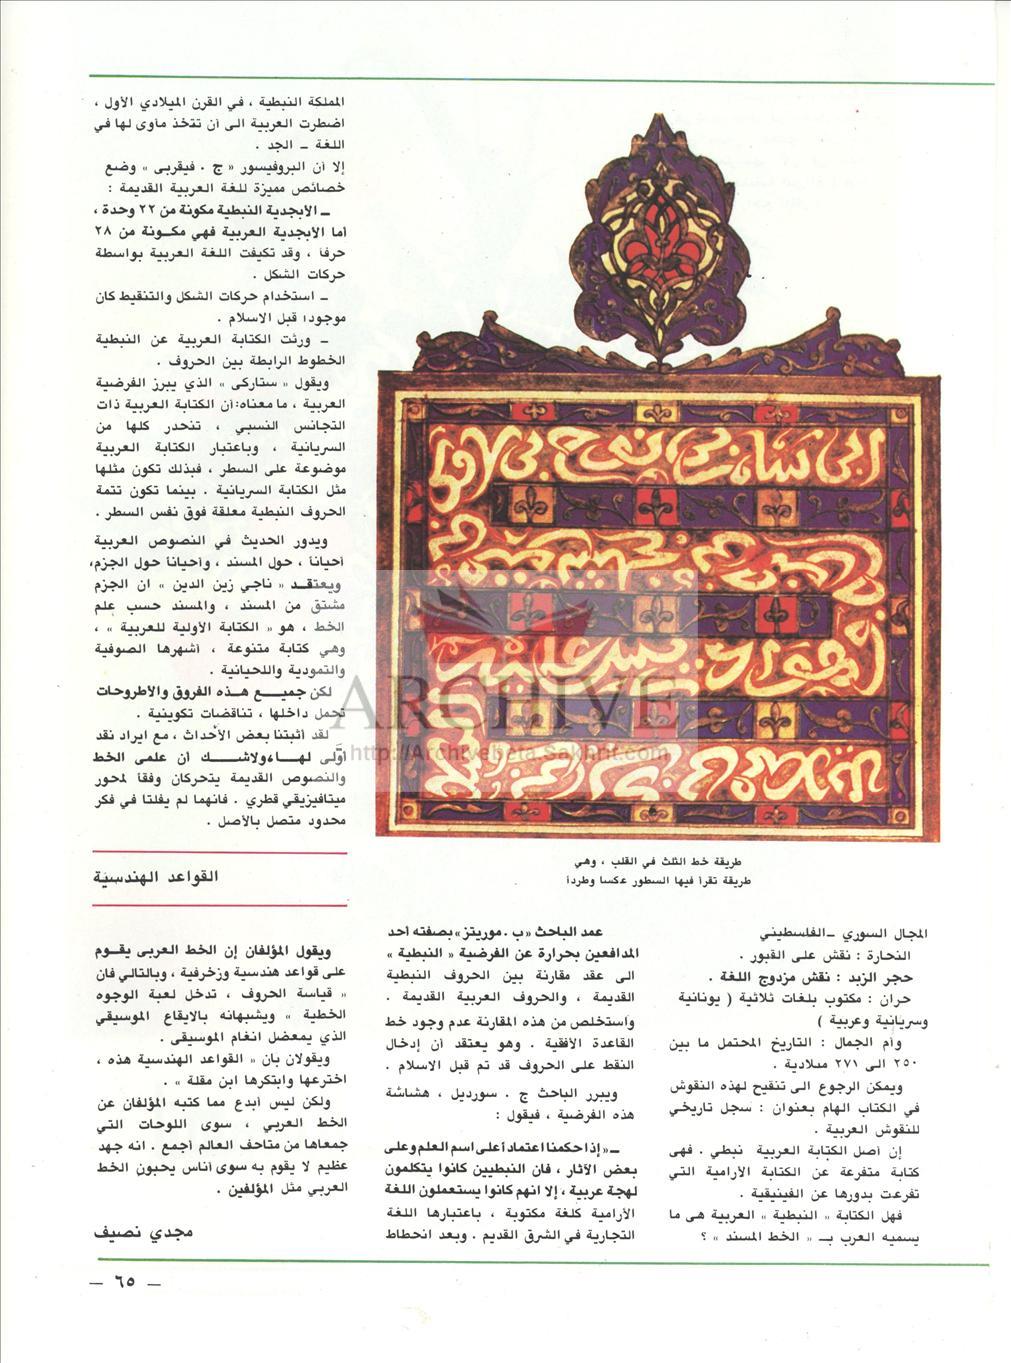 المجال السوري – الفلسطيني
النحارة : نقش على القبور .
حجر الزبد : نقش مزدوج اللغة .
حران : مكتوب بلغات ثلاثية ( يونانية
وسريانية وعربية )
وأم الجمال : التاريخ المحتمل ما بين
٢٥٠ الى ٢٧١ ميلادية .
ويمكن الرجوع الى تنقيح لهذه النقوش
في الكتاب الهام بعنوان : سجل تاريخي
للنقوش العربية .
إن أصل الكتابة العربية نبطي . فهى
كتابة متفرعة عن الكتابة الآرامية التي
تفرعت بدورها عن الفينيقية .
فهل الكتابة « النبطية » العربية هى ما
يسميه العرب بـ « الخط المسند » ؟
عمد الباحث « ب . موريتز » بصفته أحد
المدافعين بحرارة عن الفرضية « النبطية »
الى عقد مقارنة بين الحروف النبطية
القديمة ، والحروف العربية القديمة .
واستخلص من هذه المقارنة عدم وجود خط
القاعدة الأفقية . وهو يعتقد أن إدخال
النقط على الحروف قد تم قبل الاسلام .
ويبرر الباحث ج . سورديل ، هشاشة
هذه الفرضية ، فيقول :
ــ « إذا حكمنا اعتمادا على اسم العلم وعلى
بعض الآثار ، فان النبطيين كانوا يتكلمون
لهجة عربية ، إلا انهم كانوا يستعملون اللغة
الآرامية كلغة مكتوبة ، باعتبارها اللغة
التجارية في الشرق القديم . وبعد انحطاط
المملكة النبطية ، في القرن الميلادي الأول ،
اضطرت العربية الى أن تتخذ مأوى لها في
اللغة – الجد .
إلا أن البروفيسور « ج . فيفربى » وضع
خصائص مميزة للغة العربية القديمة :
ــ الأبجدية النبطية مكونة من ٢٢ وحدة ،
أما الأبجدية العربية فهي مكـونة من ٢٨
حرفا ، وقد تكيفت اللغة العربية بواسطة
حركات الشكل .
ــ استخدام حركات الشكل والتنقيط كان
موجودا قبل الاسلام .
ــ ورثت الكتابة العربية عن النبطية
الخطوط الرابطة بين الحروف .
ويقول « ستاركى » الذي يبرز الفرضية
العربية ، ما معناه: أن الكتابة العربية ذات
التجانس النسبي ، تنحدر كلها من
السريانية ، وباعتبار الكتابة العربية
موضوعة على السطر ، فبذلك تكون مثلها
مثل الكتابة السريانية . بينما تكون تتمة
الحروف النبطية معلقة فوق نفس السطر .
ويدور الحديث في النصوص العربية
أحيانا ، حول المسند ، وأحيانا حول الجزم،
ويعتقـد « ناجي زين الدين » ان الجزم
مشتق من المسند ، والمسند حسب علم
الخط ، هو « الكتابة الأولية للعربية » ،
وهي كتابة متنوعة ، أشهرها الصوفية
والثمودية واللحيانية .
لكن جميــع هـذه الفروق والأطروحات
تحمل داخلها ، تناقضات تكوينية .
لقد أثبتنا بعض الأحداث ، مع ايراد نقد
أوّلى لهـا ، ولاشـــك أن علمى الخط
والنصوص القديمة يتحركان وفقاً لمحور
ميتافيزيقي قطري . فانهما لم يفلتا في فكر
محدود متصل بالأصل .
القواعد الهندسية
ويقول المؤلفان إن الخط العربى يقـوم
على قواعد هندسية وزخرفية ، وبالتالي فان
« قياسة الحروف ، تدخل لعبة الوجوه
الخطية » ويشبهانه بالايقاع الموسيقي
الذي يمعضل انغام الموسيقى .
ويقولان بان « القواعد الهندسية هذه ،
اخترعها وابتكرها ابن مقلة » .
ولكن ليس أبدع مما كتبه المؤلفان عن
الخط العربي ، سوى اللوحات التي
جمعاها من متاحف العالم أجمع . انه جهد
عظيم لا يقوم به سوى أناس يحبون الخط
العربي مثل المؤلفين .
مجدي نصيف
طريقة خط الثلث في القلب ، وهي
طريقة تقرأ فيها السطور عكسا وطرداً
ARCHIVE
http://Archivebeta.Sakhrit.com
– ٦٥ –